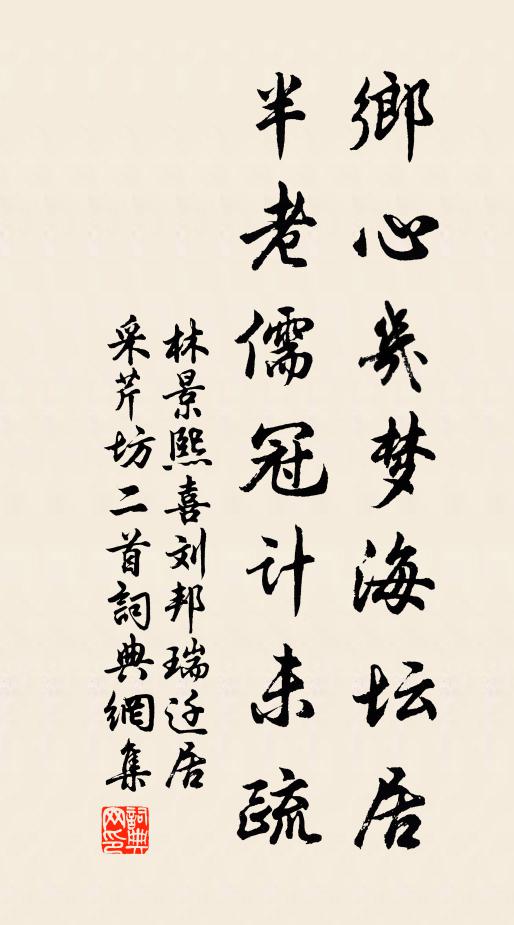 鄉心幾梦海坛居
半老儒冠计未疏
林景熙喜刘邦瑞迁居
采芹坊二首詞典網集
詞典网印